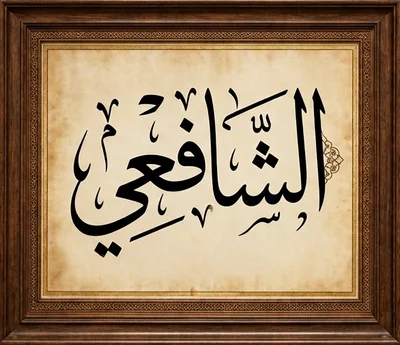 الشافعي